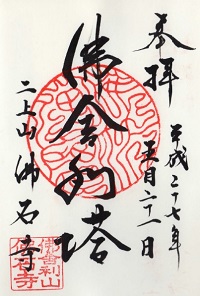 奉拝
平成二十七年
月二十一日
佛舎利塔
二上山 佛石寺
佛舎利山
佛石寺